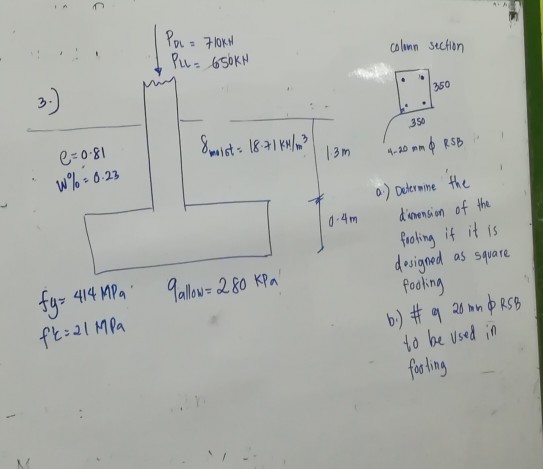 3.)
P_DL = 710KN
P_LL = 650KN
e = 0.81
w% = 0.23
γ_moist = 18.71 KN/m³
1.3m
0.4m
fy = 414 MPa
f'c = 21 MPa
q_allow = 280 KPa
column section
350
350
4-20 mm ϕ RSB
a.) Determine the
dimension of the
footing if it is
designed as square
footing
b.) # of 20 mm ϕ RSB
to be used in
footing